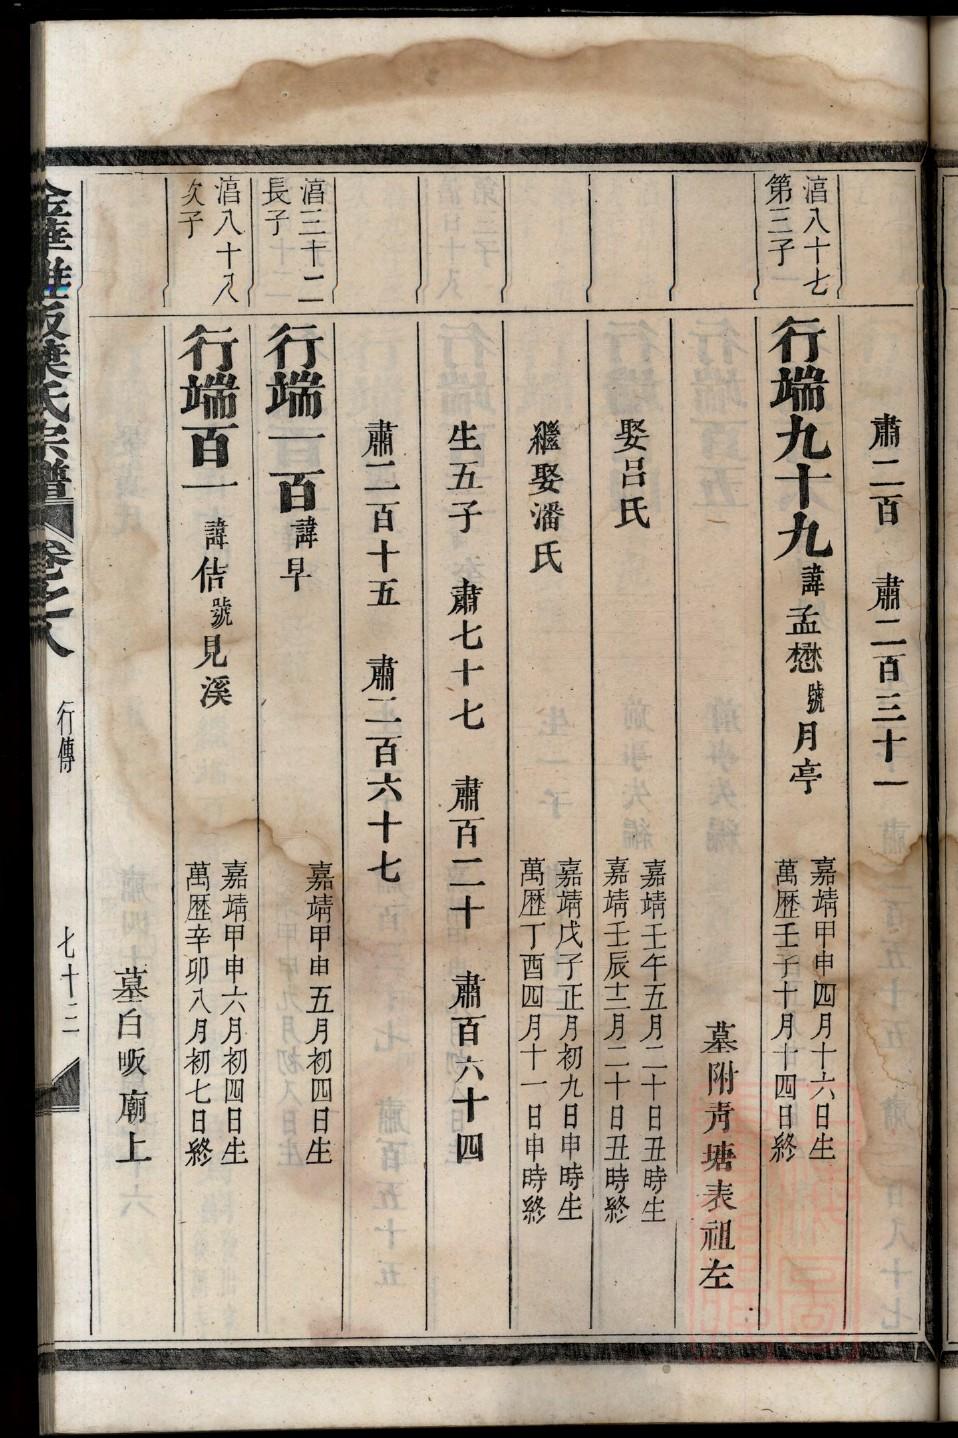 肅二百 肅二百三十一
湻八十七
第三子
行端九十九 諱孟懋 號月亭
嘉靖甲申四月十六日生
萬歷壬子十月十四日終
墓附靑塘表祖左
娶呂氏
嘉靖壬午五月二十日丑時生
嘉靖壬辰十二月二十日丑時終
繼娶潘氏
嘉靖戊子正月初九日申時生
萬歷丁酉四月十一日申時終
生五子 肅七十七 肅百二十 肅百六十四
肅二百十五 肅二百六十七
湻三十二
長子
行端一百 諱早
嘉靖甲申五月初四日生
湻八十八
次子
行端百一 諱佶 號見溪
嘉靖甲申六月初四日生
萬歷辛卯八月初七日終
墓白畈廟上
葉氏宗譜 卷之八 行傳 七十三